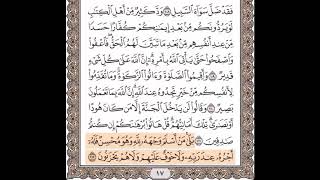 فَقَدْ ضَلَّ سَوَآءَ ٱلسَّبِيلِ ۝ وَدَّ كَثِيرٌ مِّنْ أَهْلِ ٱلْكِتَٰبِ
لَوْ يَرُدُّونَكُم مِّنۢ بَعْدِ إِيمَٰنِكُمْ كُفَّارًا حَسَدًا
مِّنْ عِندِ أَنفُسِهِم مِّنۢ بَعْدِ مَا تَبَيَّنَ لَهُمُ ٱلْحَقُّ فَٱعْفُوا۟
وَٱصْفَحُوا۟ حَتَّىٰ يَأْتِىَ ٱللَّهُ بِأَمْرِهِۦٓ إِنَّ ٱللَّهَ عَلَىٰ كُلِّ شَىْءٍ
قَدِيرٌ ۝ وَأَقِيمُوا۟ ٱلصَّلَوٰةَ وَءَاتُوا۟ ٱلزَّكَوٰةَ وَمَا تُقَدِّمُوا۟
لِأَنفُسِكُم مِّنْ خَيْرٍ تَجِدُوهُ عِندَ ٱللَّهِ إِنَّ ٱللَّهَ بِمَا تَعْمَلُونَ
بَصِيرٌ ۝ وَقَالُوا۟ لَن يَدْخُلَ ٱلْجَنَّةَ إِلَّا مَن كَانَ هُودًا
أَوْ نَصَٰرَىٰ تِلْكَ أَمَانِيُّهُمْ قُلْ هَاتُوا۟ بُرْهَٰنَكُمْ إِن كُنتُمْ
صَٰدِقِينَ ۝ بَلَىٰ مَنْ أَسْلَمَ وَجْهَهُۥ لِلَّهِ وَهُوَ مُحْسِنٌ فَلَهُۥٓ
أَجْرُهُۥ عِندَ رَبِّهِۦ وَلَا خَوْفٌ عَلَيْهِمْ وَلَا هُمْ يَحْزَنُونَ ۝
١٧